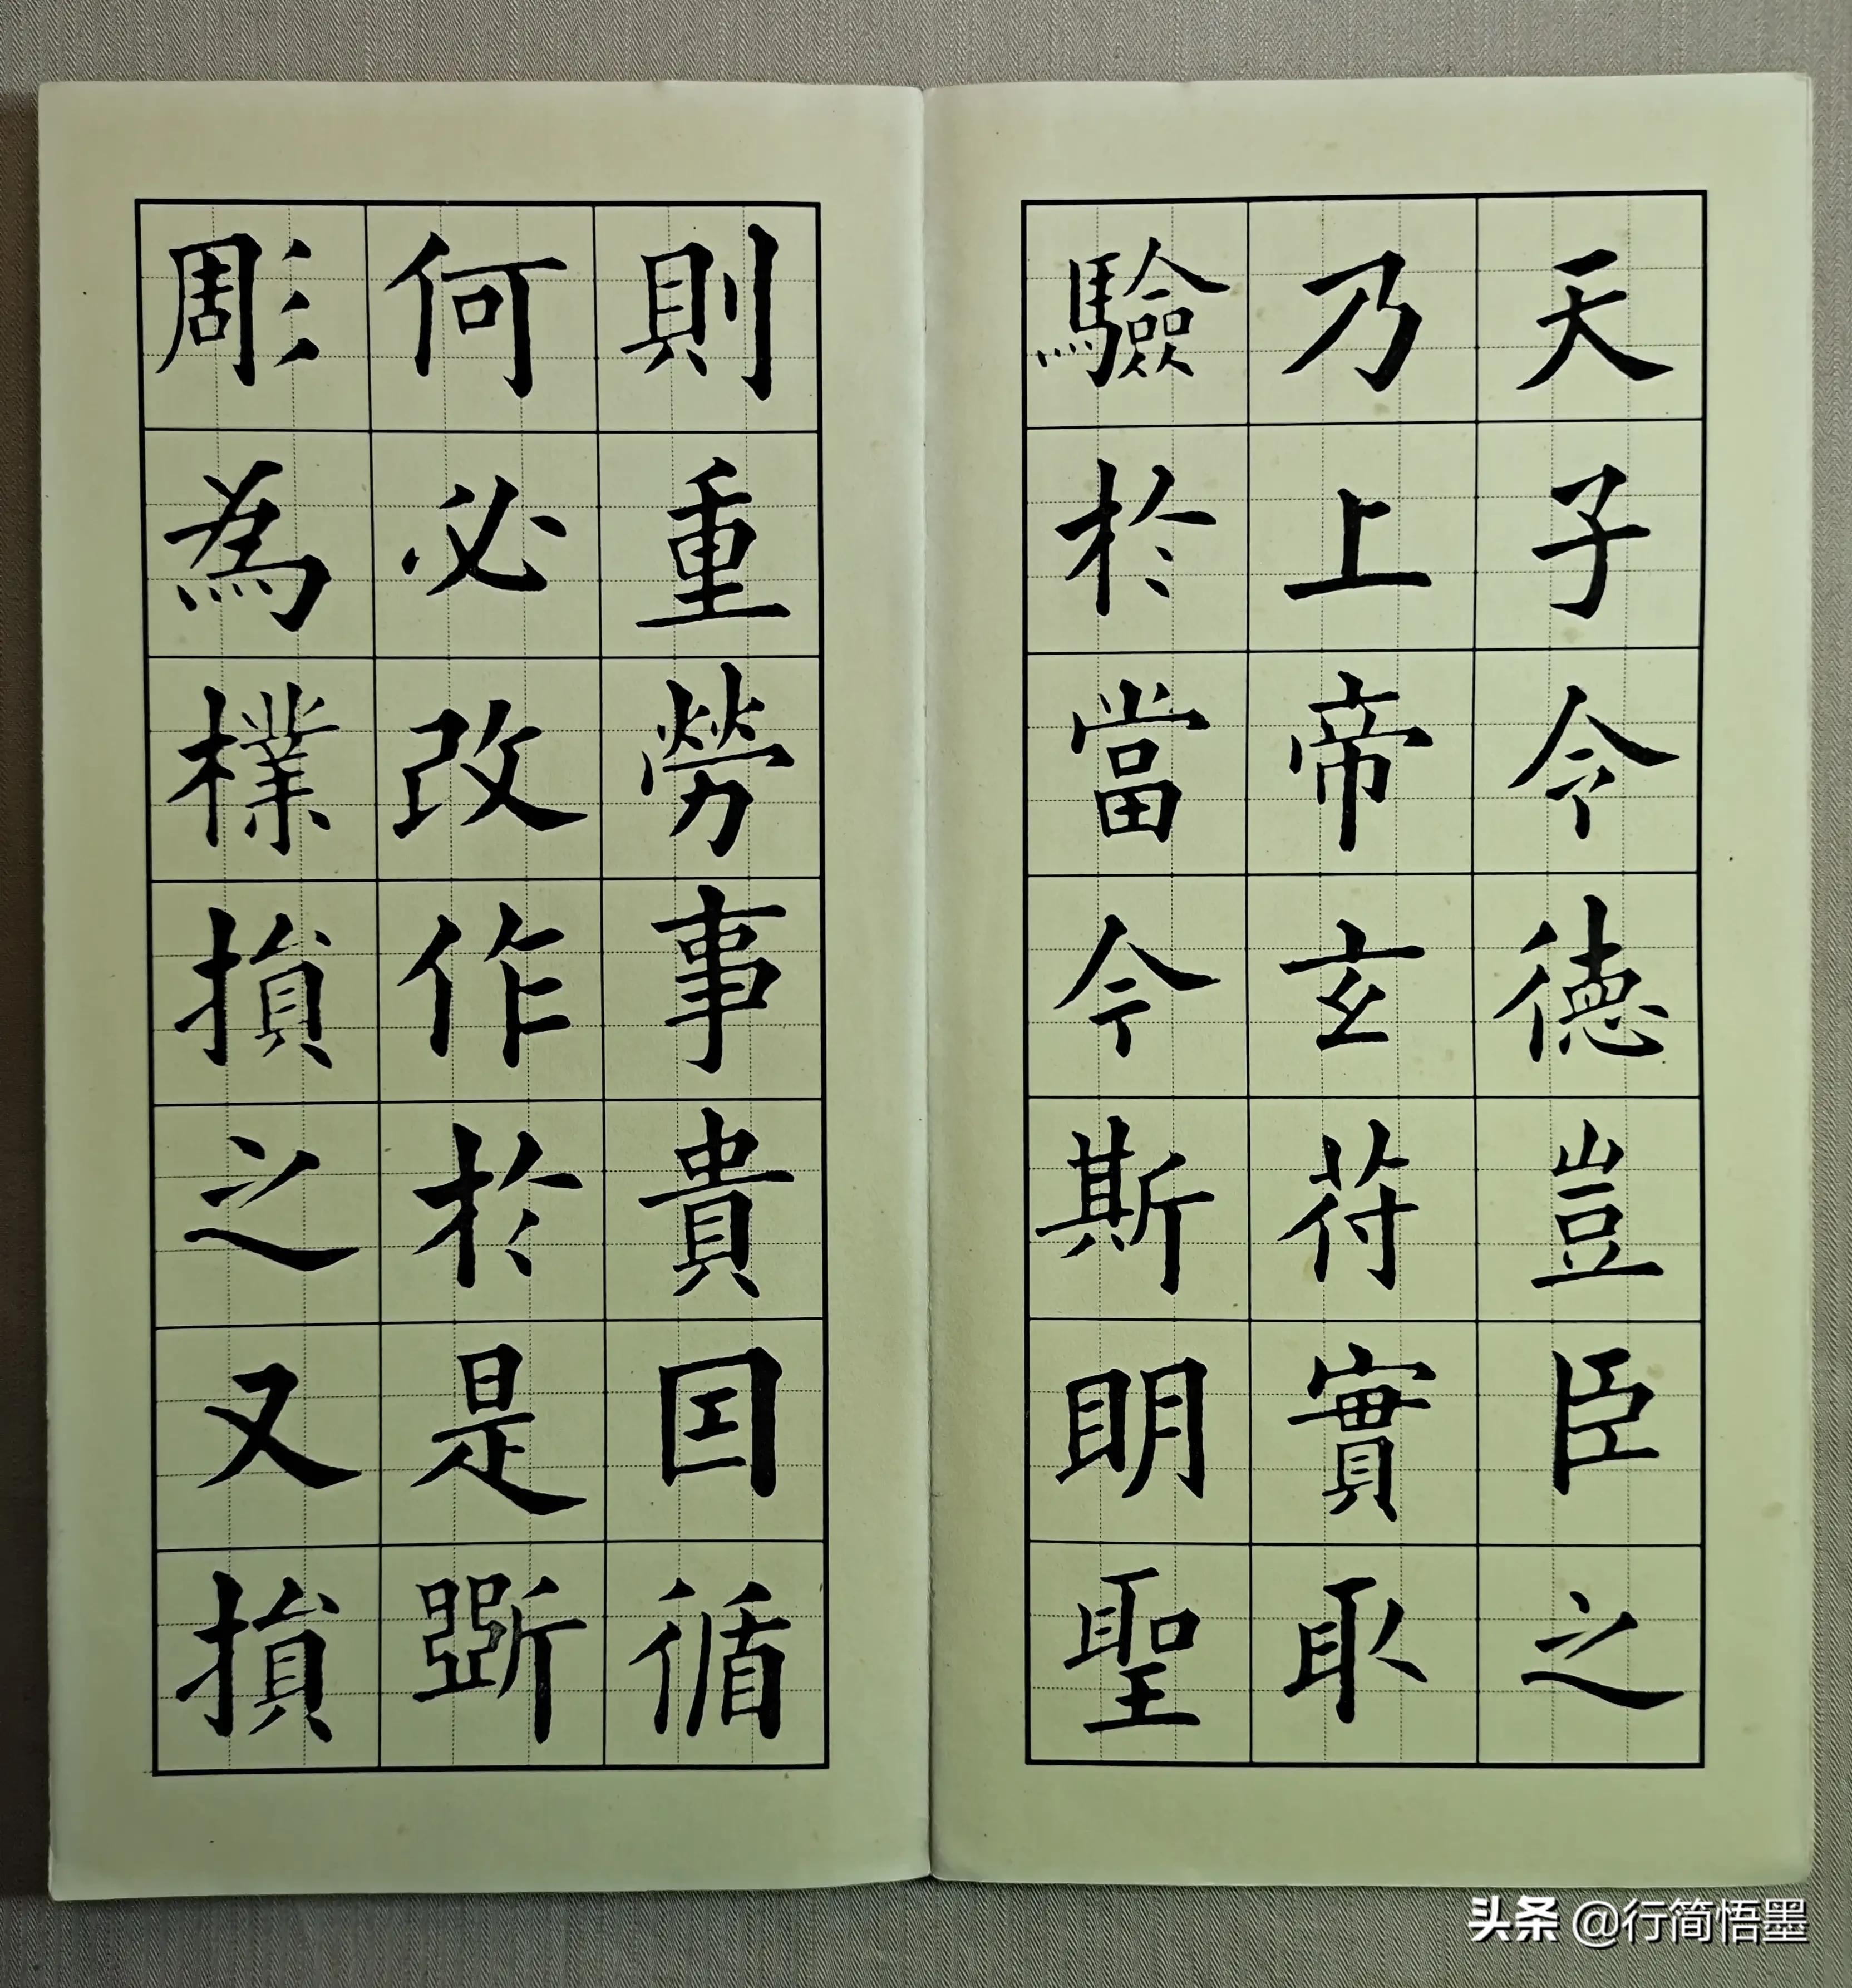 天子令德豈臣之
乃上帝玄符實取
驗於當今斯明聖
則重勞事貴因循
何必改作於是斲
彫為樸損之又損
头条 @行简悟墨